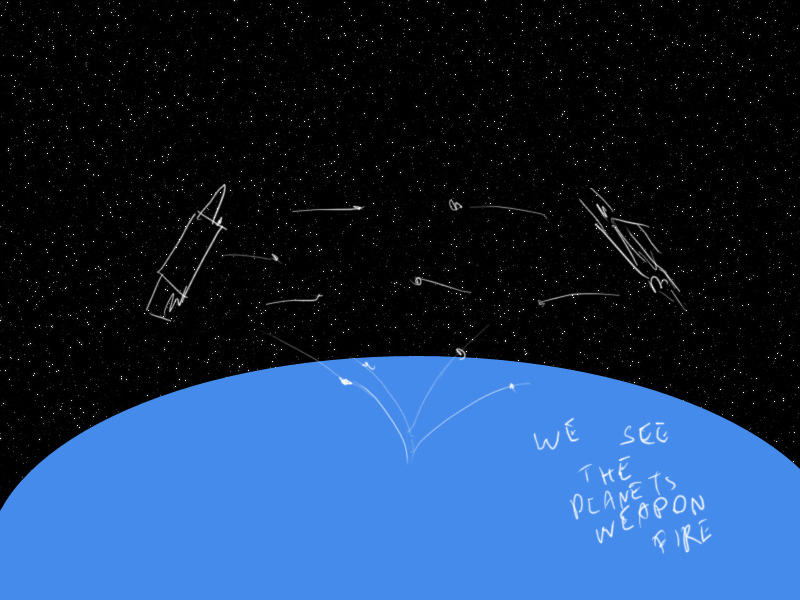 WE SEE
THE
PLANETS
WEAPON
FIRE